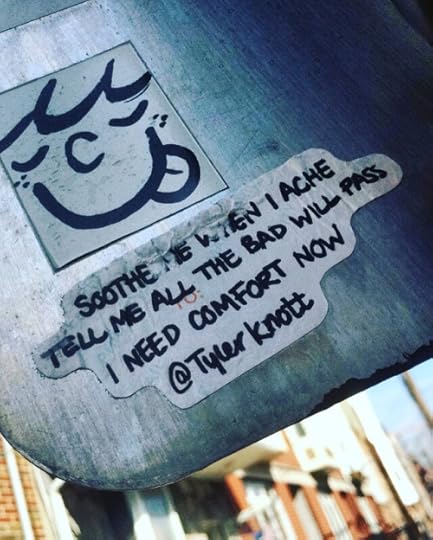 SOOTHE ME WHEN I ACHE
TELL ME ALL THE BAD WILL PASS
I NEED COMFORT NOW
@Tyler Knott